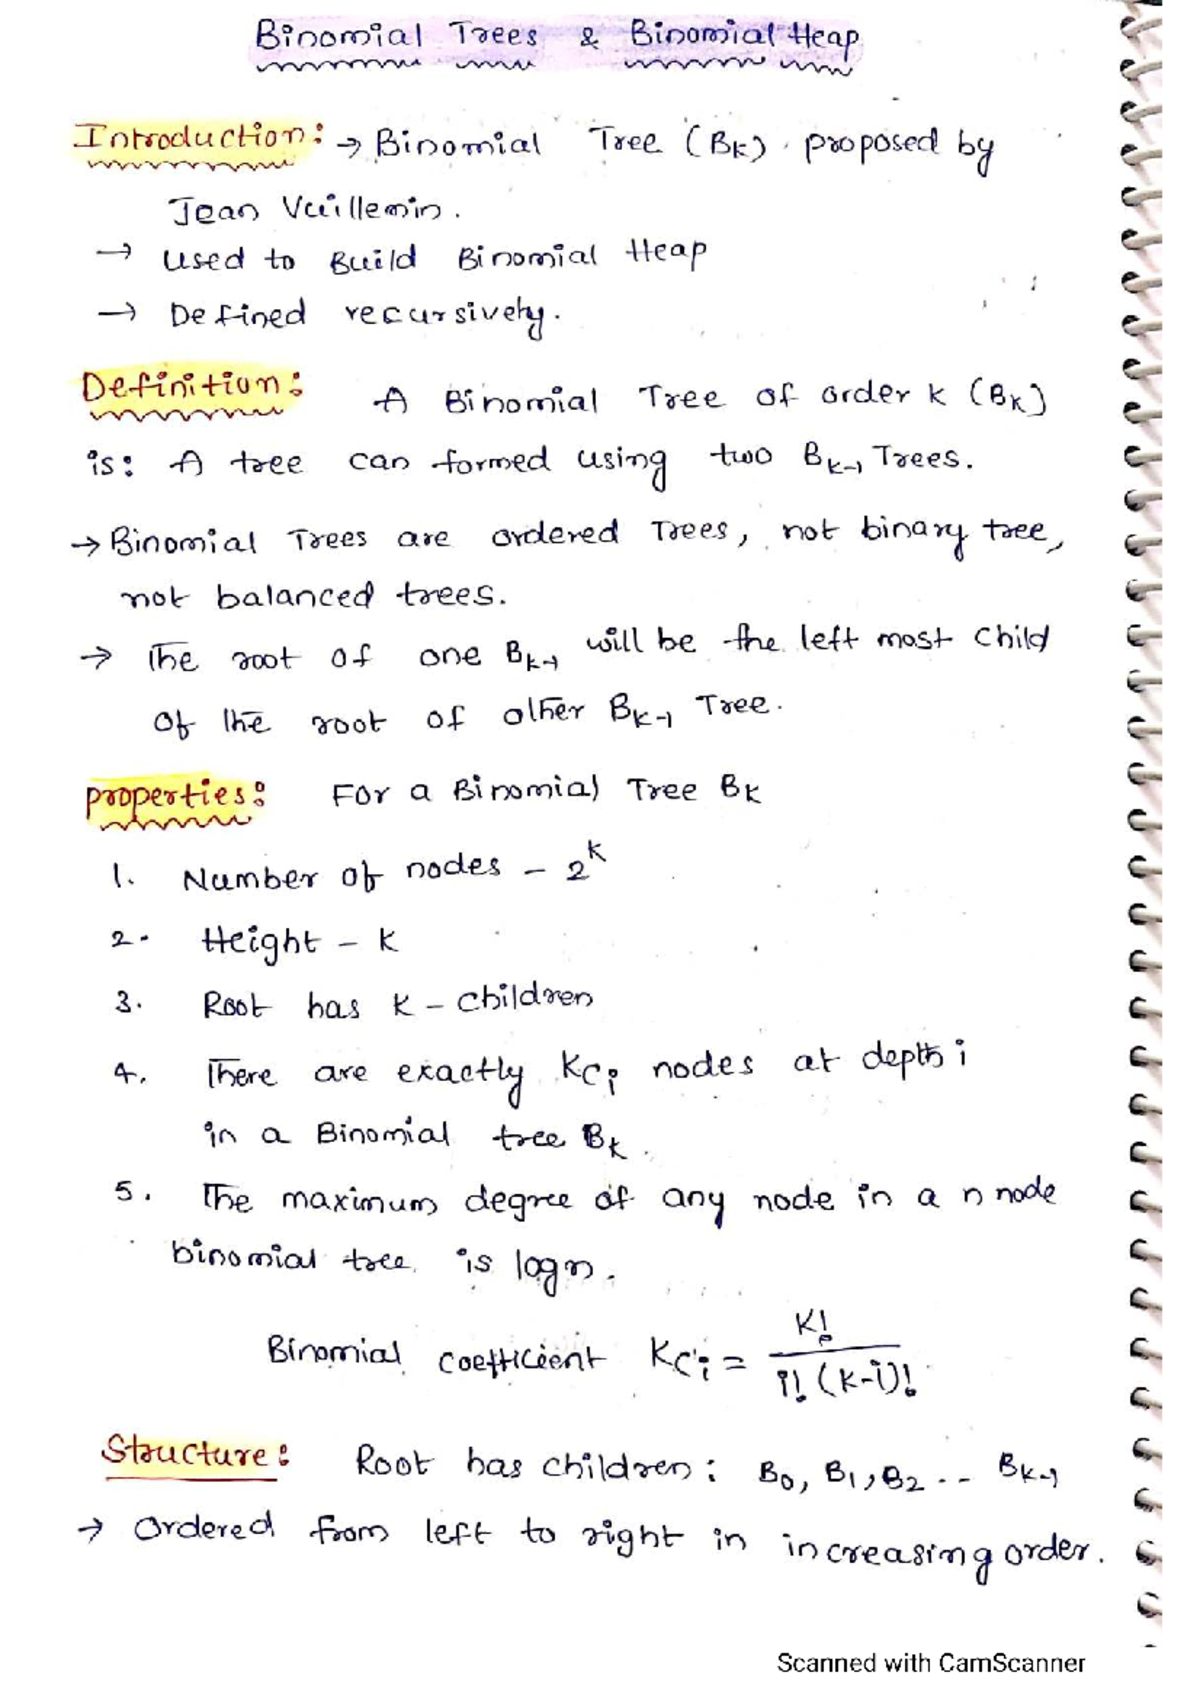 Binomial Trees & Binomial Heap
Introduction: → Binomial Tree (Bk) proposed by
Jean Vuillemin.
→ used to Build Binomial Heap
→ Defined recursively.
Definition: A Binomial Tree of order k (Bk)
is: A tree can formed using two Bk-1 Trees.
→ Binomial Trees are ordered Trees, not binary tree,
not balanced trees.
→ The root of one Bk-1 will be the left most child
of the root of other Bk-1 Tree.
properties: For a Binomial Tree Bk
1. Number of nodes - 2^k
2. Height - k
3. Root has k - children
4. There are exactly kCi nodes at depth i
in a Binomial tree Bk.
5. The maximum degree of any node in a n node
binomial tree is logn.
Binomial coefficient kCi = k! / i! (k-i)!
Structure: Root has children: B0, B1, B2 .. Bk-1
→ Ordered from left to right in increasing order.
Scanned with CamScanner